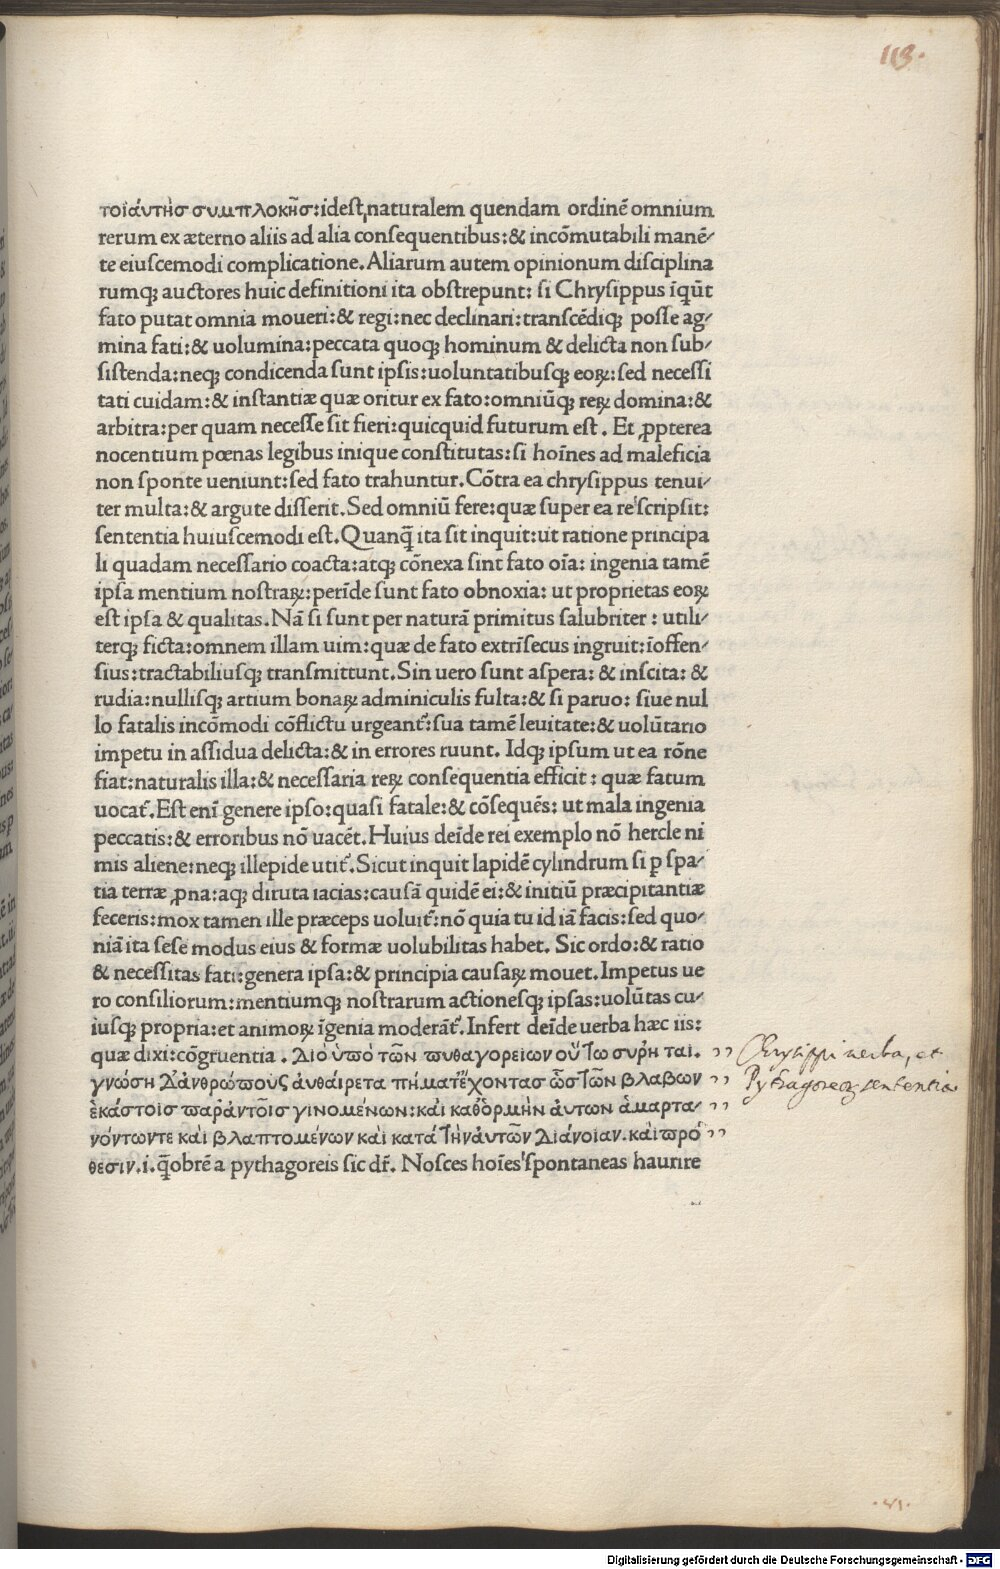 113.
τοιάυτησ συμπλοκῆσ:idest,naturalem quendam ordinē omnium
rerum ex æterno aliis ad alia conſequentibus:& incōmutabili manē-
te eiuſcemodi complicatione.Aliarum autem opinionum diſciplina
rumqꝫ auctores huic definitioni ita obſtrepunt: ſi Chryſippus īqūt
fato putat omnia moueri:& regi:nec declinari:tranſcēdiqꝫ poſſe ag-
mina fati:& uolumina:peccata quoqꝫ hominum & delicta non ſub-
ſiſtenda:neqꝫ condicenda ſunt ipſis:uoluntatibuſqꝫ eoꝝ:ſed neceſſi
tati cuidam:& inſtantiæ quæ oritur ex fato:omniūqꝫ reꝝ domina:&
arbitra:per quam neceſſe ſit fieri:quicquid futurum eſt. Et ꝓpterea
nocentium pœnas legibus inique conſtitutas:ſi hoīnes ad maleficia
non ſponte ueniunt:ſed fato trahuntur.Cōtra ea chryſippus tenui-
ter multa:& argute diſſerit.Sed omniū fere:quæ ſuper ea re ſcripſit:
ſententia huiuſcemodi eſt.Quanq̄ ita ſit inquit:ut ratione principa
li quadam neceſſario coacta:atqꝫ cōnexa ſint fato oīa: ingenia tamē
ipſa mentium noſtraꝝ:perīde ſunt fato obnoxia: ut proprietas eoꝝ
eſt ipſa & qualitas.Nā ſi ſunt per naturā primitus ſalubriter : utili-
terqꝫ ficta:omnem illam uim:quæ de fato extrīſecus ingruit:īoffen-
ſius:tractabiliuſqꝫ tranſmittunt.Sin uero ſunt aſpera: & inſcita: &
rudia:nulliſqꝫ artium bonaꝝ adminiculis fulta:& ſi paruo: ſiue nul
lo fatalis incōmodi cōflictu urgeant᷑:ſua tamē leuitate:& uolūtario
impetu in aſſidua delicta:& in errores ruunt. Idqꝫ ipſum ut ea rōne
fiat:naturalis illa:& neceſſaria reꝝ conſequentia efficit : quæ fatum
uocat᷑.Eſt enī genere ipſo:quaſi fatale:& cōſequēs: ut mala ingenia
peccatis:& erroribus nō uacēt.Huius deīde rei exemplo nō hercle ni
mis aliene:neqꝫ illepide utit᷑.Sicut inquit lapidē cylindrum ſi ꝑ ſpa-
tia terræ ꝓna:aqꝫ diruta iacias:cauſā quidē ei:& initiū præcipitantiæ
feceris:mox tamen ille præceps uoluit᷑:nō quia tu id iā facis:ſed quo-
niā ita ſeſe modus eius & formæ uolubilitas habet. Sic ordo:& ratio
& neceſſitas fati:genera ipſa:& principia cauſaꝝ mouet.Impetus ue
ro conſiliorum:mentiumqꝫ noſtrarum actioneſqꝫ ipſas:uolūtas cu-
iuſqꝫ propria:et animoꝝ īgenia moderāt᷑.Infert deīde uerba hæc iis:
quæ dixi:cōgruentia . Διο ὑπὸ τῶν πυθαγορείων οὕτω συρη ται.
γνώση Δ'ἀνθρώπους ἀυθάιρετα πήματ'ἔχοντας ὡστῶν βλαβων
ἑκάστοισ παρ'ἀντοῖσ γινομένων:κὰι καθ'ὁρμὴν ἀυτων ἁμαρτα-
νόντωντε κὰι βλαπτομένων κὰι κατά τὴναυτῶν Διάνοιαν.κὰιπρό
θεσιν.i.q̄obrē a pythagoreis ſic dr̄. Noſces hoīes ſpontaneas haurire
Chrysippi uerba, et
Pythagoreoꝝ sententia.